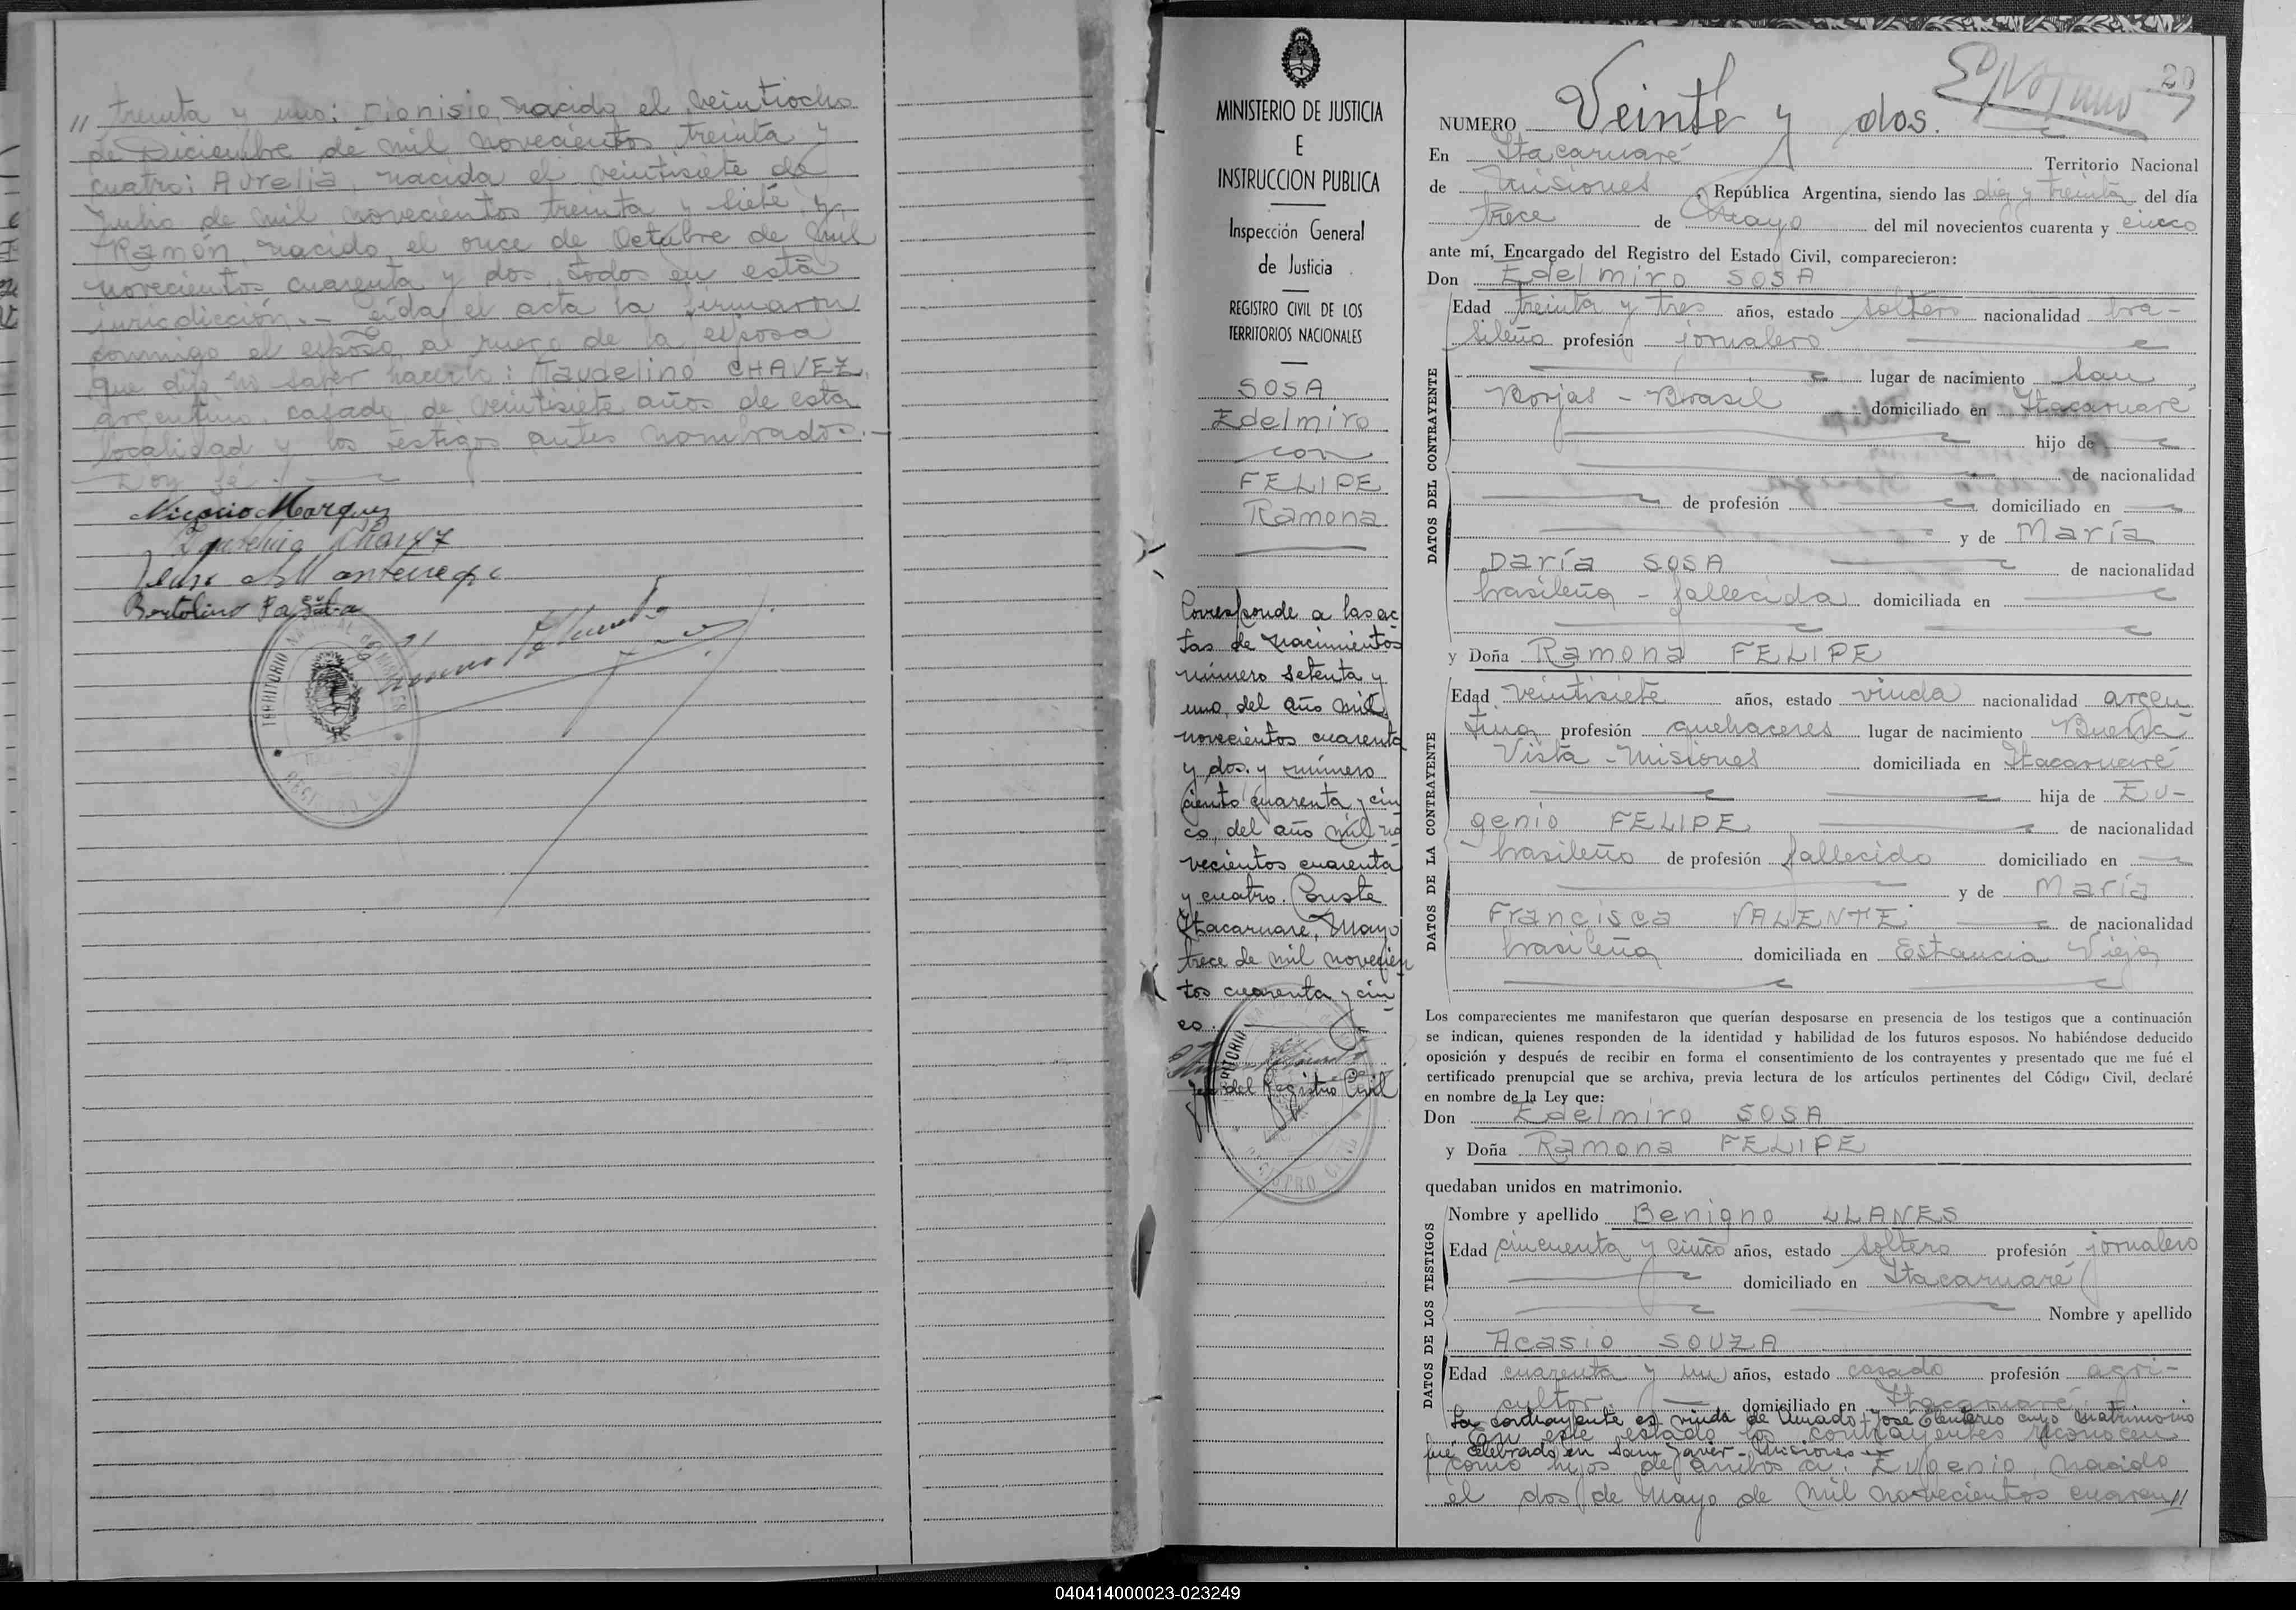 " treinta y uno; Dionisio, nacido el veintiocho
de Diciembre de mil novecientos treinta y
cuatro; Aurelia, nacida el veintisiete de
Julio de mil novecientos treinta y siete y
Ramón, nacido el once de Octubre de mil
novecientos cuarenta y dos, todos en esta
jurisdicción.- Leída el acta la firmaron
conmigo el esposo, a ruego de la esposa
que dijo no saber hacerlo: CHAVEZ,
argentino, casado, de veintisiete años, de esta
localidad y los testigos antes nombrados.-
Doy fe.
Marquez
TERRITORIO NACIONAL DE MISIONES
REGISTRO
MINISTERIO DE JUSTICIA
E
INSTRUCCION PUBLICA
Inspección General
de Justicia
REGISTRO CIVIL DE LOS
TERRITORIOS NACIONALES
SOSA
Edelmiro
con
FELIPE
Ramona
Corresponde a las ac
tas de nacimientos
número setenta y
uno, del año mil
novecientos cuarenta
y dos. y número
ciento cuarenta y cin
co, del año mil no
vecientos cuarenta
y cuatro. Conste
Itacaruare, Mayo
trece de mil novecien
tos cuarenta y cin
co.
Jefe del Registro Civil
29
NUMERO Veinte y dos.
En Itacaruaré Territorio Nacional
de Misiones, República Argentina, siendo las diez y treinta del día
trece de Mayo del mil novecientos cuarenta y cinco
ante mí, Encargado del Registro del Estado Civil, comparecieron:
Don Edelmiro SOSA
DATOS DEL CONTRAYENTE
Edad treinta y tres años, estado soltero nacionalidad bra-
sileño profesión jornalero
lugar de nacimiento San
Borjas - Brasil domiciliado en Itacaruaré
hijo de
de nacionalidad
de profesión domiciliado en
y de María
Daría SOSA de nacionalidad
brasileña - fallecida domiciliada en
y Doña Ramona FELIPE
DATOS DE LA CONTRAYENTE
Edad veintisiete años, estado viuda nacionalidad argen
tina profesión quehaceres lugar de nacimiento Buena
Vista - Misiones domiciliada en Itacaruaré
hija de Eu-
genio FELIPE de nacionalidad
brasileño de profesión fallecido domiciliado en
y de María
Francisca VALENTE de nacionalidad
brasileña domiciliada en Estancia Vieja
Los comparecientes me manifestaron que querían desposarse en presencia de los testigos que a continuación
se indican, quienes responden de la identidad y habilidad de los futuros esposos. No habiéndose deducido
oposición y después de recibir en forma el consentimiento de los contrayentes y presentado que me fué el
certificado prenupcial que se archiva, previa lectura de los artículos pertinentes del Código Civil, declaré
en nombre de la Ley que:
Don Edelmiro SOSA
y Doña Ramona FELIPE
quedaban unidos en matrimonio.
DATOS DE LOS TESTIGOS
Nombre y apellido Benigno LLANES
Edad cincuenta y cinco años, estado soltero profesión jornalero
domiciliado en Itacaruaré
Nombre y apellido
Acasio SOUZA
Edad cuarenta y un años, estado casado profesión agri-
cultor domiciliado en Itacaruaré
La contrayente es viuda de Amado José Eleuterio cuyo matrimonio
En este estado los contrayentes reconocen
fué celebrado en San Javier - Misiones
como hijos de ambos a: Eugenio, nacido
el dos de Mayo de mil novecientos cuaren//
040414000023-023249